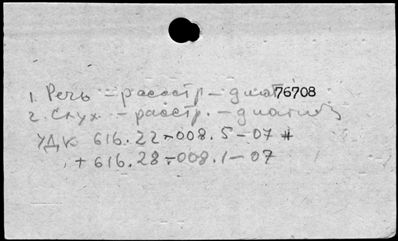 1. Речь – расстр – диагн 76708
2. Слух – расстр. – диагноз
УДК 616.22-008.5-07 *
+ 616.28-008.1-07